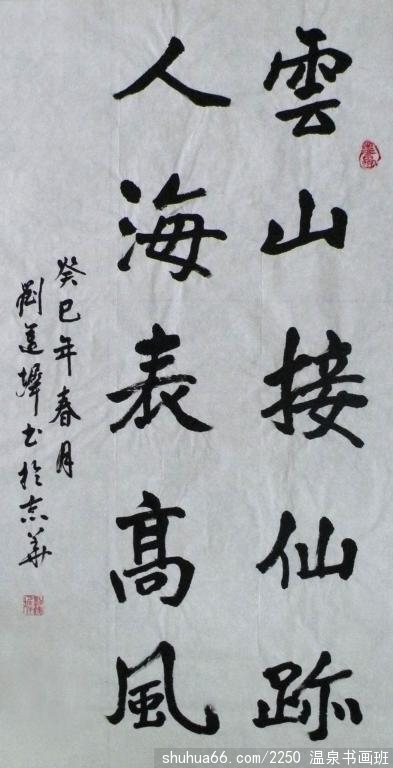 雲山接仙跡
人海表高風
癸巳年春月
劉 書於京華
shuhua66.com/2250 温泉书画班